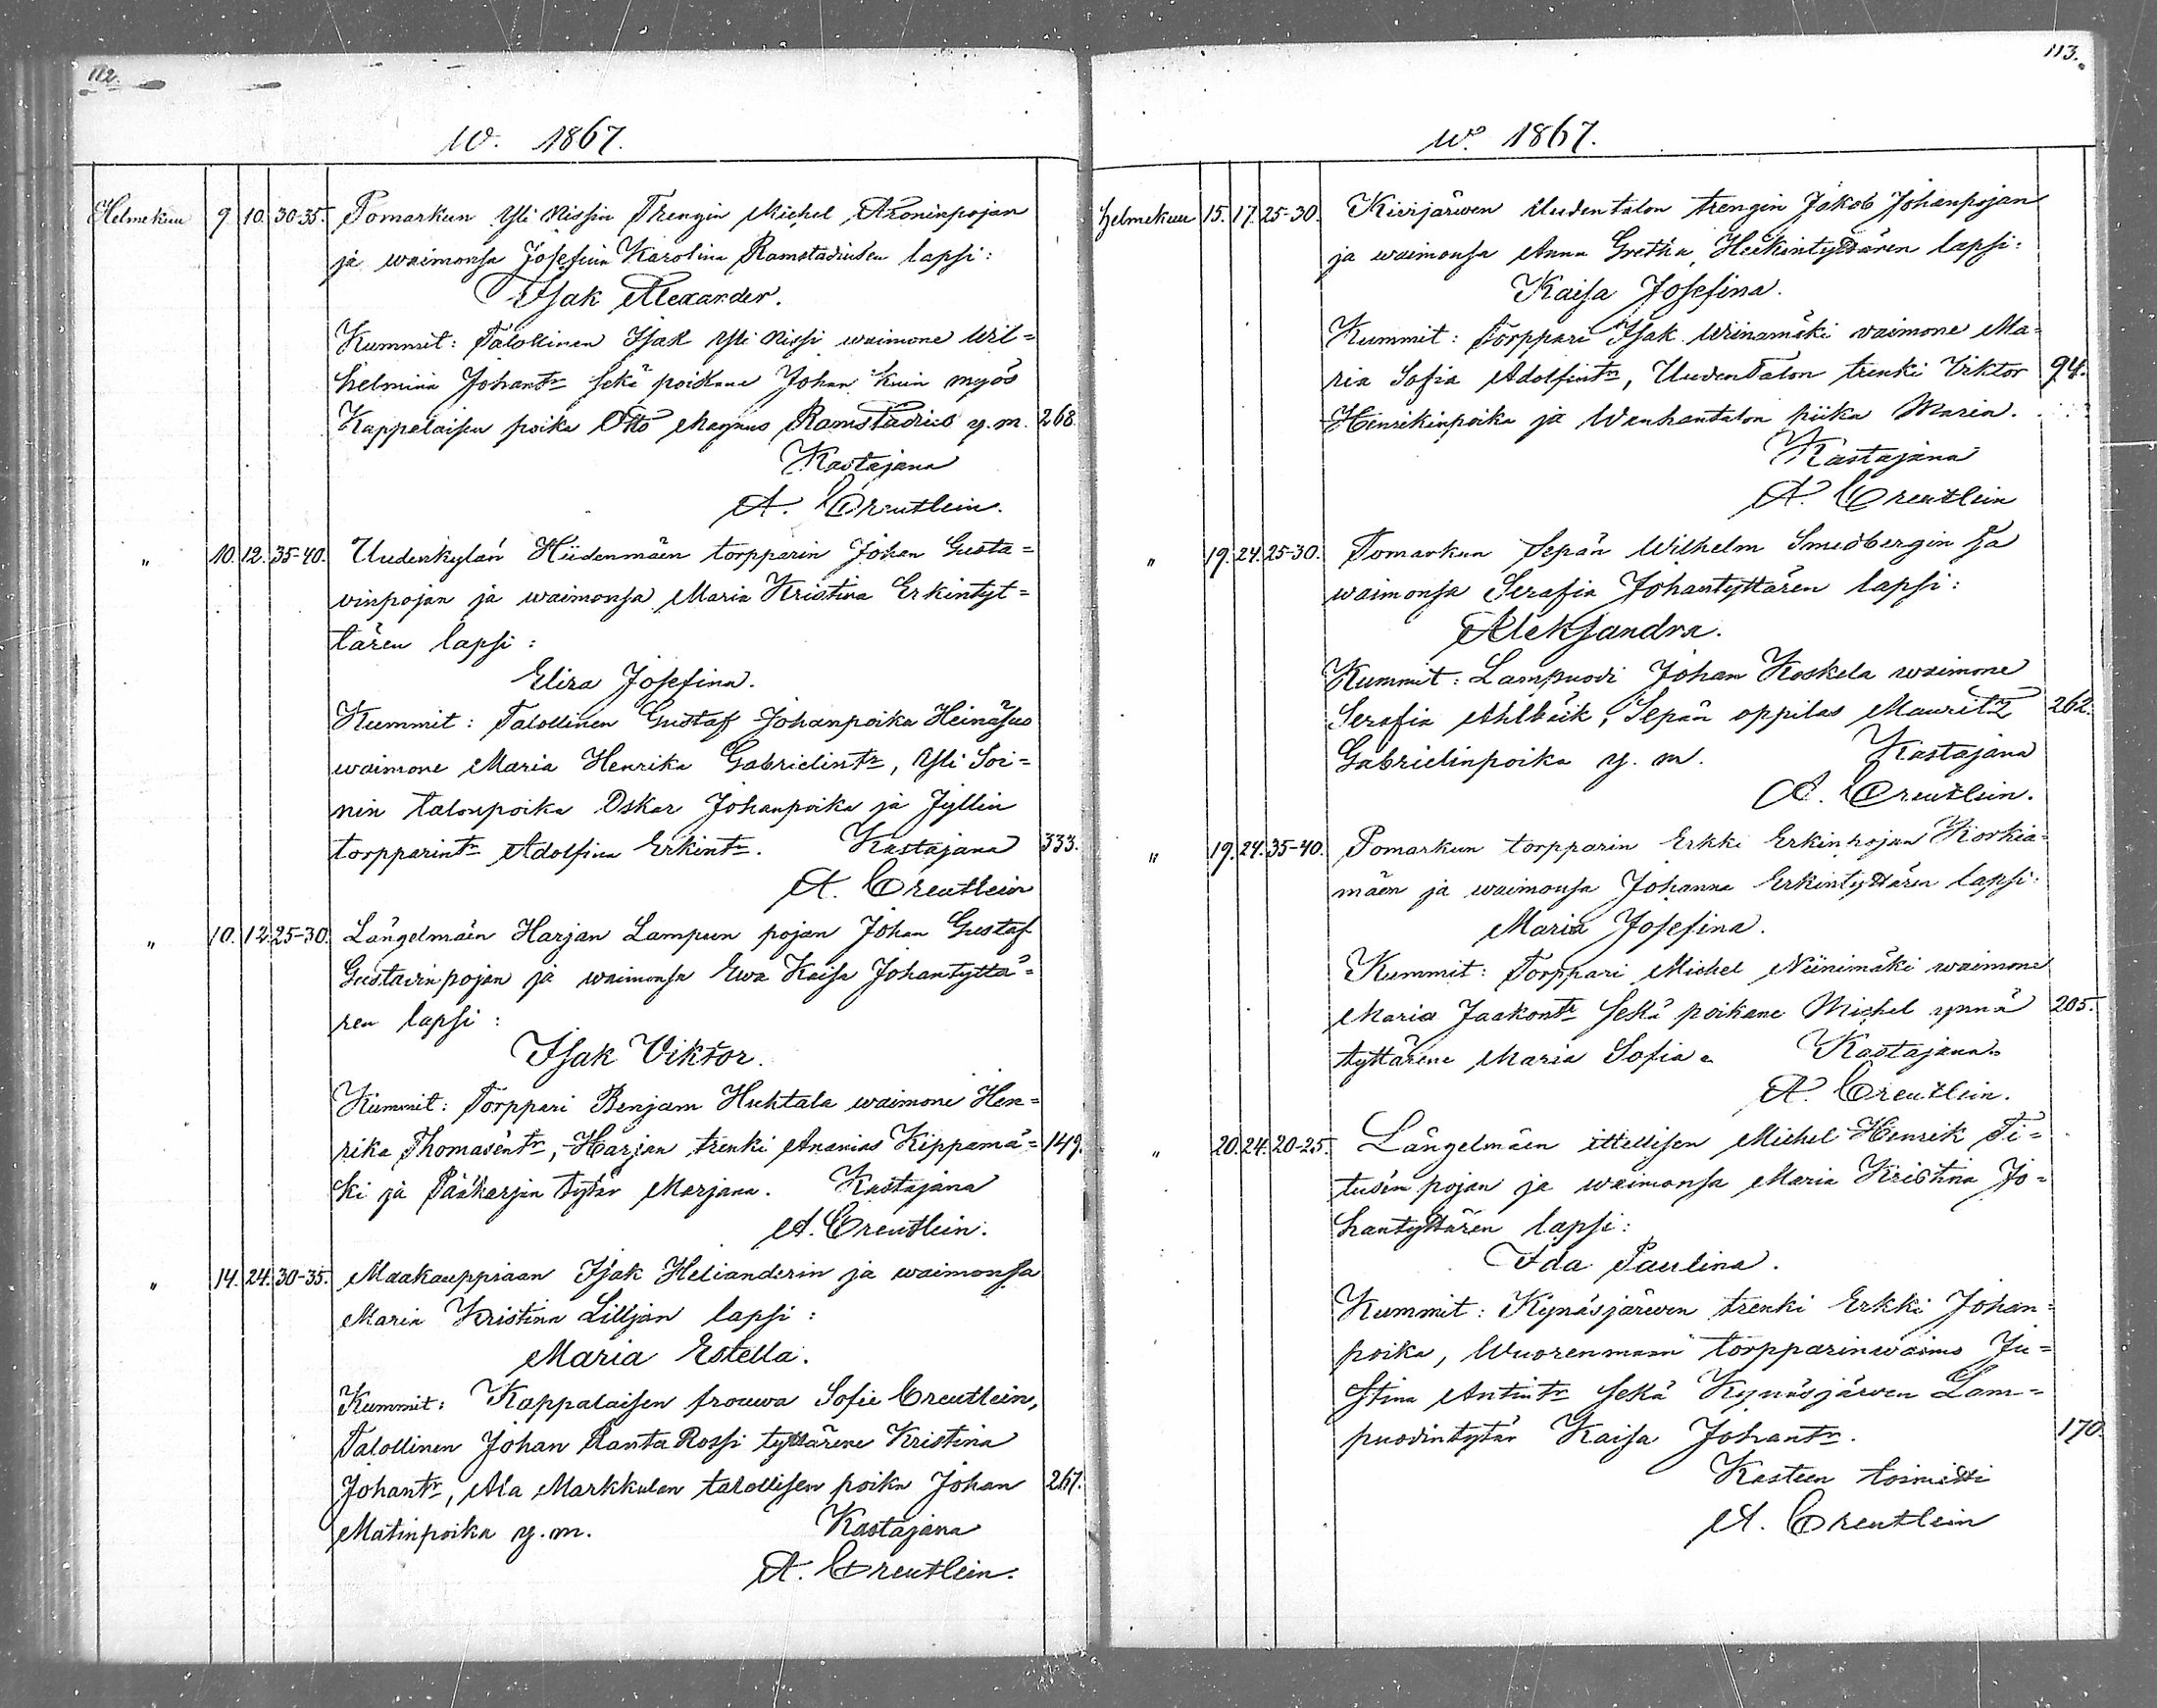 112.
w. 1867.
Helmekuu 9. 10. 30-35. Pomarkun Yli Nissin Trengin Michel Aroninpojan
ja waimonsa Josefiina Karolina Ramstadiuksen lapsi:
Isak Alexander.
Kummit: Talollinen Isak Yli Nissi waimone Wil=
helmina Johantr sekä poikane Johan kuin myös
Kappelaisen poika Otto Magnus Ramstadius y. m. 268.
Kastajana
A. Creutlein.
" 10. 12. 35-40. Uudenkylän Hiidenmäen torpparin Johan Gusta=
vinpojan ja waimonsa Maria Kristina Erkintyt=
tären lapsi:
Eliza Josefina.
Kummit: Talollinen Gustaf Johanpoika Heinäsuo
waimone Maria Henrika Gabrielintr, Yli Soi=
nin talonpoika Oskar Johanpoika ja Jyllin
torpparintr Adolfina Erkintr. Kastajana 333.
A. Creutlein
" 10. 12. 25-30. Längelmäen Harjan Lampun pojan Johan Gustaf
Gustavinpojan ja waimonsa Ewa Kaisa Johantyttä=
ren lapsi:
Isak Viktor.
Kummit: Torppari Benjam Huhtala waimone Hen=
rika Thomasentr, Harjan trenki Ananias Kippamä= 149.
ki ja Pääkarjan tytär Marjana. Kastajana
A. Creutlein.
" 14. 24. 30-35. Maakauppiaan Isak Helianderin ja waimonsa
Maria Kristina Lilljan lapsi:
Maria Estella.
Kummit: Kappalaisen frouwa Sofie Creutlein,
Talollinen Johan Ranta Rossi tyttärene Kristina
Johantr, Ala Markkulan talollisen poika Johan 267.
Matinpoika y. m. Kastajana
A. Creutlein.
113.
w. 1867.
Helmekuu 15. 17. 25-30. Kierjärwen Uudentalon trengin Jakob Johanpojan
ja waimonsa Anna Gretha Heikintyttären lapsi:
Kaisa Josefina.
Kummit: Torppari Isak Wiinamäki waimone Ma=
ria Sofia Adolfintr, Uudentalon trenki Viktor 94.
Henrikinpoika ja Wanhantalon piika Maria.
Kastajana
A. Creutlein
" 19. 24. 25-30. Pomarkun Sepän Wilhelm Smedbergin ja
waimonsa Serafia Johantyttären lapsi:
Aleksandra.
Kummit: Lampuodi Johan Koskela waimone
Serafia Ahlbäck, Sepän oppilas Mauritz 262.
Gabrielinpoika y. m. Kastajana
A. Creutlein.
" 19. 24. 35-40. Pomarkun torpparin Erkki Erkinpojan Korkia=
mäen ja waimonsa Johanna Erkintyttären lapsi:
Maria Josefina.
Kummit: Torppari Michel Niinimäki waimone
Maria Jaakontr sekä poikane Michel ynnä 205.
tyttärene Maria Sofia. Kastajana
A. Creutlein.
" 20. 24. 20-25. Längelmäen ittellisen Michel Henrik Ti=
tusen pojan ja waimonsa Maria Kristina Jo=
hantyttären lapsi:
Ida Paulina.
Kummit: Kynäsjärwen trenki Erkki Johan=
poika, Wuorenmaan torpparinwaimo Ju=
stina Antintr sekä Kynäsjärwen Lam=
puodintytär Kaisa Johantr. 170.
Kasteen toimitti
A. Creutlein